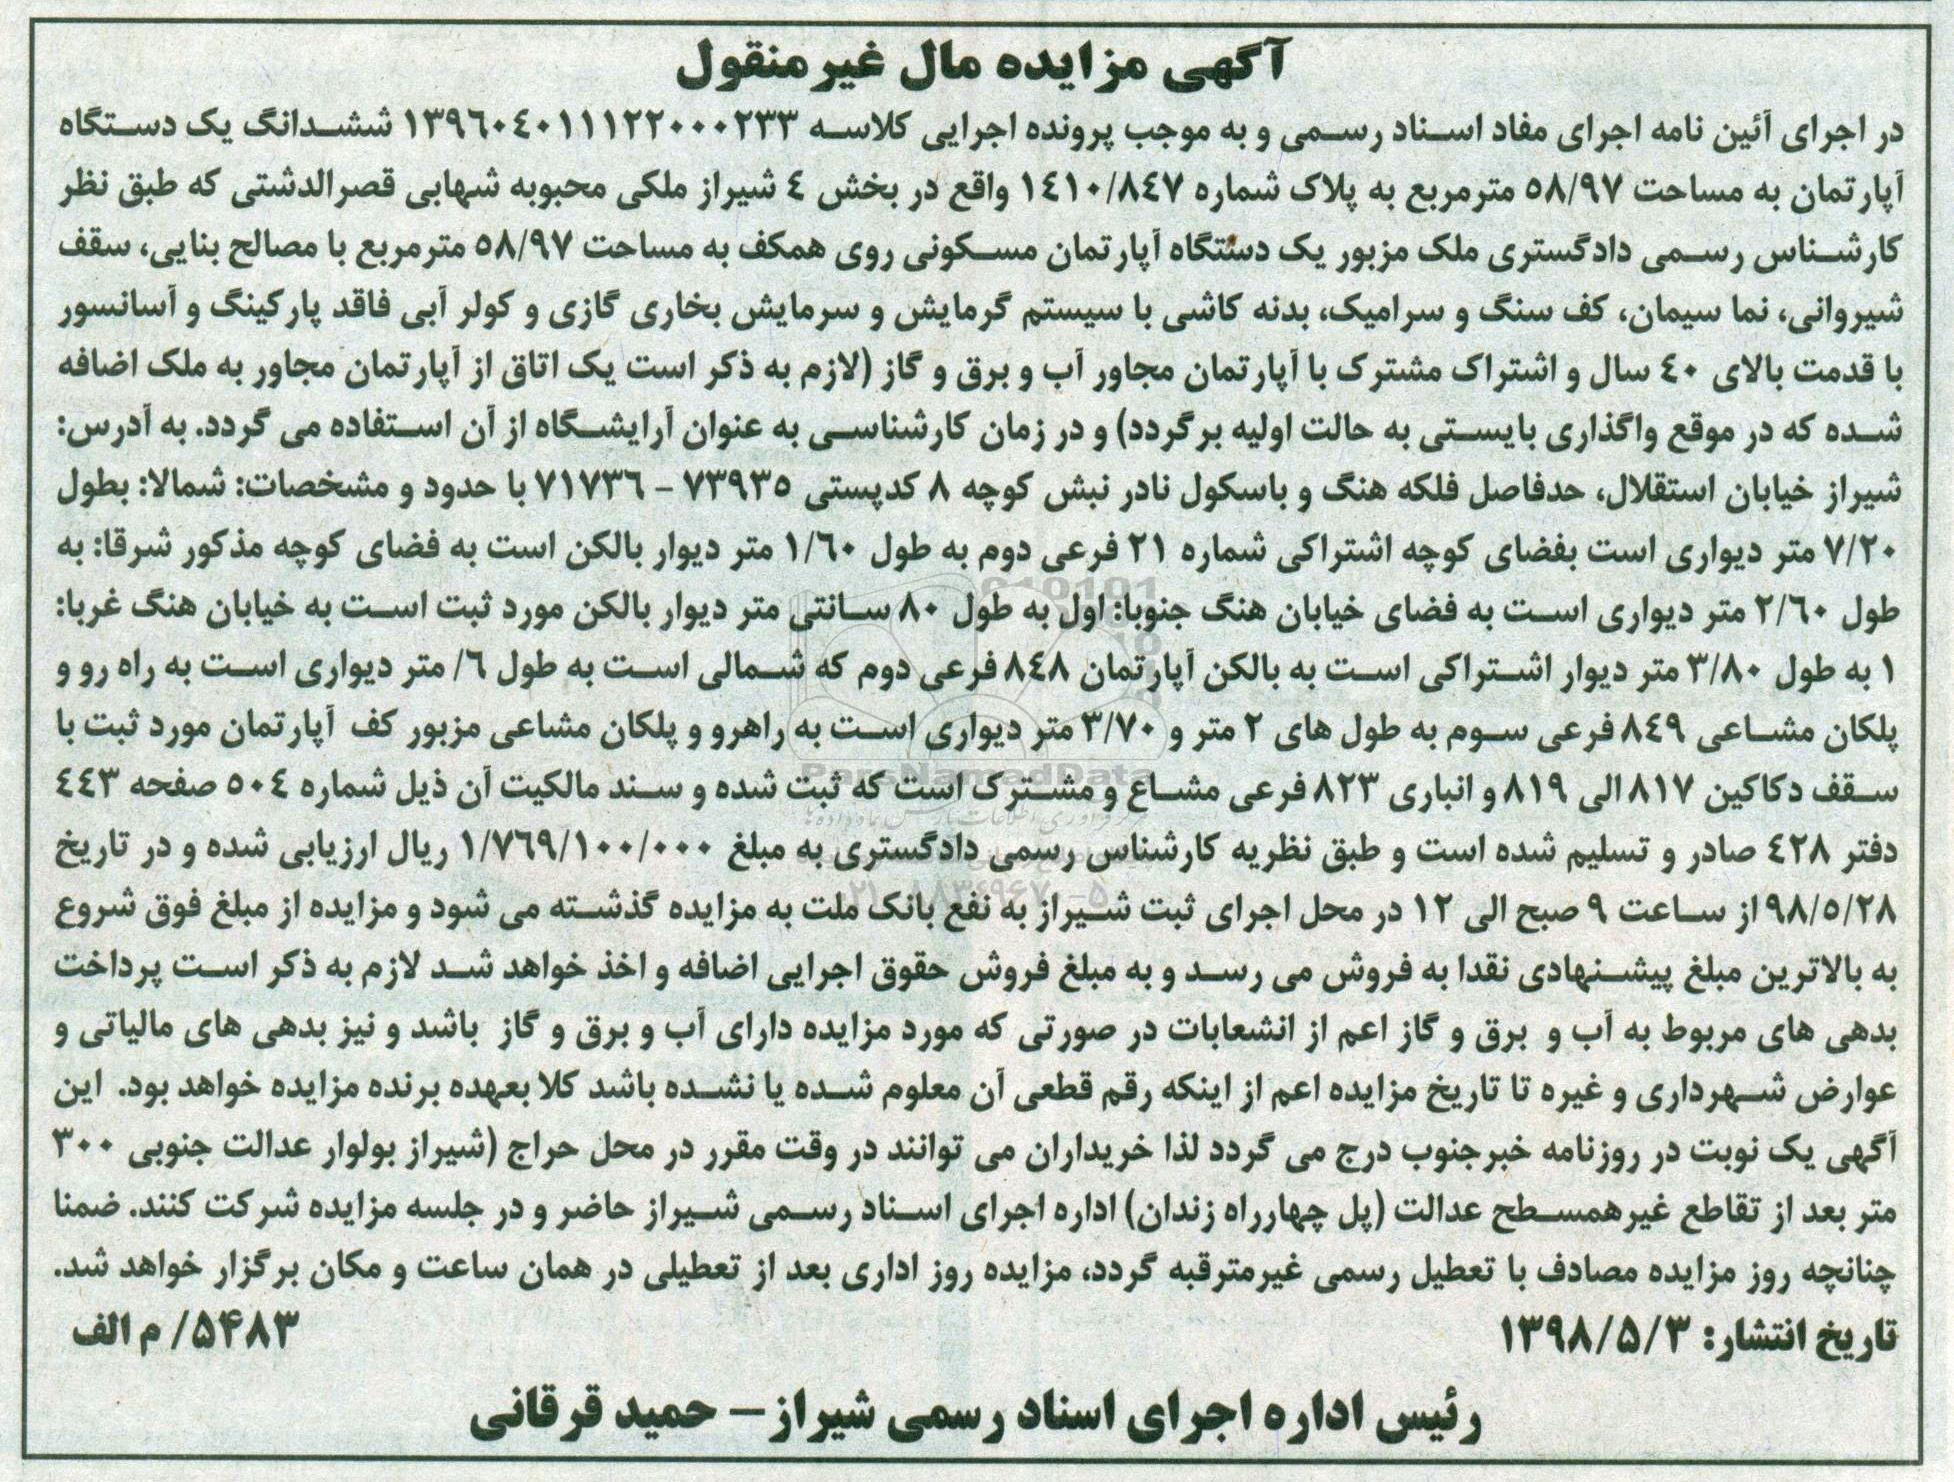 آگهی مزایده مال غیرمنقول
در اجرای آئین نامه اجرای مفاد اسناد رسمی و به موجب پرونده اجرایی کلاسه ۱۳۹۶۰۴۰۱۱۱۲۲۰۰۰۲۳۳ ششدانگ یک دستگاه
آپارتمان به مساحت ۵۸/۹۷ مترمربع به پلاک شماره ۱۴۱۰/۸۴۷ واقع در بخش ۴ شیراز ملکی محبوبه شهابی قصرالدشتی که طبق نظر
کارشناس رسمی دادگستری ملک مزبور یک دستگاه آپارتمان مسکونی روی همکف به مساحت ۵۸/۹۷ مترمربع با مصالح بنایی، سقف
شیروانی، نما سیمان، کف سنگ و سرامیک، بدنه کاشی با سیستم گرمایش و سرمایش بخاری گازی و کولر آبی فاقد پارکینگ و آسانسور
با قدمت بالای ۴۰ سال و اشتراک مشترک با آپارتمان مجاور آب و برق و گاز (لازم به ذکر است یک اتاق از آپارتمان مجاور به ملک اضافه
شده که در موقع واگذاری بایستی به حالت اولیه برگردد) و در زمان کارشناسی به عنوان آرایشگاه از آن استفاده می گردد. به آدرس:
شیراز خیابان استقلال، حدفاصل فلکه هنگ و باسکول نادر نبش کوچه ۸ کدپستی ۷۳۹۳۵ - ۷۱۷۳۶ با حدود و مشخصات: شمالا: بطول
۷/۲۰ متر دیواری است بفضای کوچه اشتراکی شماره ۲۱ فرعی دوم به طول ۱/۶۰ متر دیوار بالکن است به فضای کوچه مذکور شرقا: به
طول ۲/۶۰ متر دیواری است به فضای خیابان هنگ جنوبا: اول به طول ۸۰ سانتی متر دیوار بالکن مورد ثبت است به خیابان هنگ غربا:
۱ به طول ۳/۸۰ متر دیوار اشتراکی است به بالکن آپارتمان ۸۴۸ فرعی دوم که شمالی است به طول ۶/ متر دیواری است به راه رو و
پلکان مشاعی ۸۴۹ فرعی سوم به طول های ۲ متر و ۳/۷۰ متر دیواری است به راهرو و پلکان مشاعی مزبور کف آپارتمان مورد ثبت با
سقف دکاکین ۸۱۷ الی ۸۱۹ و انباری ۸۲۳ فرعی مشاع و مشترک است که ثبت شده و سند مالکیت آن ذیل شماره ۵۰۴ صفحه ۴۴۳
دفتر ۴۲۸ صادر و تسلیم شده است و طبق نظریه کارشناس رسمی دادگستری به مبلغ ۱/۷۶۹/۱۰۰/۰۰۰ ریال ارزیابی شده و در تاریخ
۹۸/۵/۲۸ از ساعت ۹ صبح الی ۱۲ در محل اجرای ثبت شیراز به نفع بانک ملت به مزایده گذشته می شود و مزایده از مبلغ فوق شروع
به بالاترین مبلغ پیشنهادی نقدا به فروش می رسد و به مبلغ فروش حقوق اجرایی اضافه و اخذ خواهد شد لازم به ذکر است پرداخت
بدهی های مربوط به آب و برق و گاز اعم از انشعابات در صورتی که مورد مزایده دارای آب و برق و گاز باشد و نیز بدهی های مالیاتی و
عوارض شهرداری و غیره تا تاریخ مزایده اعم از اینکه رقم قطعی آن معلوم شده یا نشده باشد کلا بعهده برنده مزایده خواهد بود. این
آگهی یک نوبت در روزنامه خبرجنوب درج می گردد لذا خریداران می توانند در وقت مقرر در محل حراج (شیراز بولوار عدالت جنوبی ۳۰۰
متر بعد از تقاطع غیرهمسطح عدالت (پل چهارراه زندان) اداره اجرای اسناد رسمی شیراز حاضر و در جلسه مزایده شرکت کنند. ضمنا
چنانچه روز مزایده مصادف با تعطیل رسمی غیرمترقبه گردد، مزایده روز اداری بعد از تعطیلی در همان ساعت و مکان برگزار خواهد شد.
تاریخ انتشار: ۱۳۹۸/۵/۳ ۵۴۸۳/ م الف
رئیس اداره اجرای اسناد رسمی شیراز - حمید قرقانی
ParsNamadData